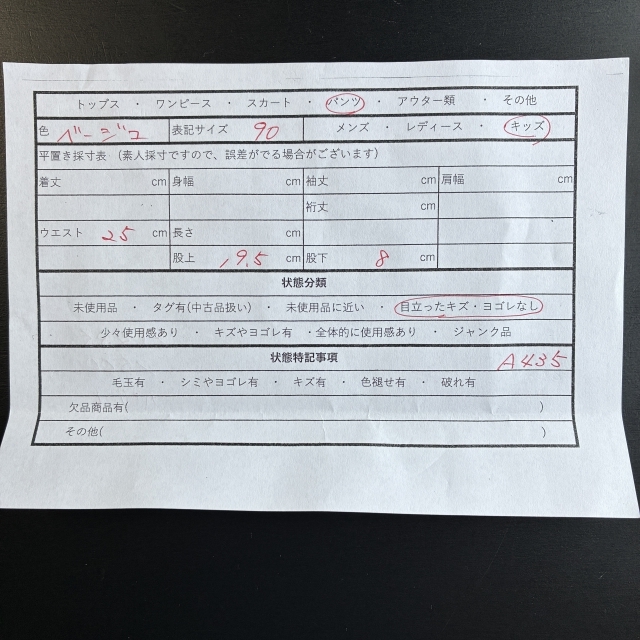 トップス ・ ワンピース ・ スカート ・ パンツ ・ アウター類 ・ その他
色 ベージュ 表記サイズ 90 メンズ ・ レディース ・ キッズ
平置き採寸表 (素人採寸ですので、誤差がでる場合がございます)
着丈 cm 身幅 cm 袖丈 cm 肩幅 cm
裄丈 cm
ウエスト 25 cm 長さ cm
股上 19.5 cm 股下 8 cm
状態分類
未使用品 ・ タグ有(中古品扱い) ・ 未使用品に近い ・ 目立ったキズ・ヨゴレなし
少々使用感あり ・ キズやヨゴレ有 ・全体的に使用感あり ・ ジャンク品
状態特記事項 A435
毛玉有 ・ シミやヨゴレ有 ・ キズ有 ・ 色褪せ有 ・ 破れ有
欠品商品有( )
その他( )